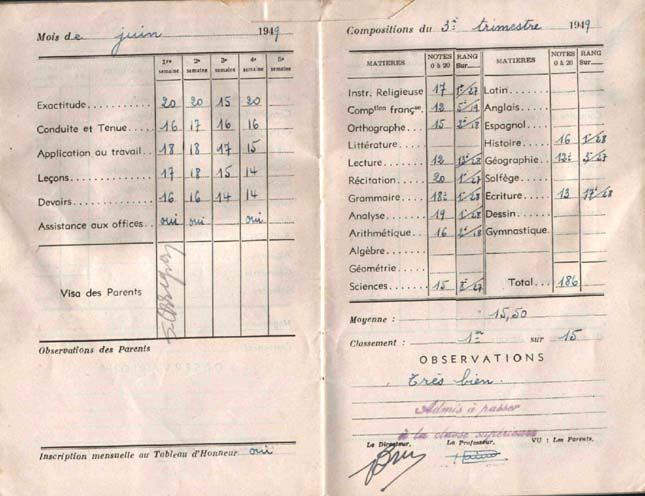 Mois de juin 1949
1re semaine 2e semaine 3e semaine 4e semaine 5e semaine
Exactitude.......... 20 20 15 20
Conduite et Tenue... 16 17 16 16
Application au travail.. 18 18 17 15
Leçons............. 17 18 15 14
Devoirs............ 16 16 14 14
Assistance aux offices.. oui oui oui
Visa des Parents
Observations des Parents
Inscription mensuelle au Tableau d'Honneur oui
Compositions du 3e trimestre 1949
MATIERES NOTES 0 à 20 RANG Sur... MATIERES NOTES 0 à 20 RANG Sur...
Instr. Religieuse 17 Latin
Comption françse. 12 Anglais
Orthographe 15 Espagnol
Littérature Histoire 16
Lecture 12 Géographie
Récitation 20 Solfège
Grammaire Ecriture 13
Analyse 19 Dessin
Arithmétique 16 Gymnastique
Algèbre
Géométrie
Sciences 15 Total... 186
Moyenne : 15,50
Classement : 1er sur 15
OBSERVATIONS
Très bien.
Admis à passer
à la classe supérieure
Le Directeur, Le Professeur, VU : Les Parents.